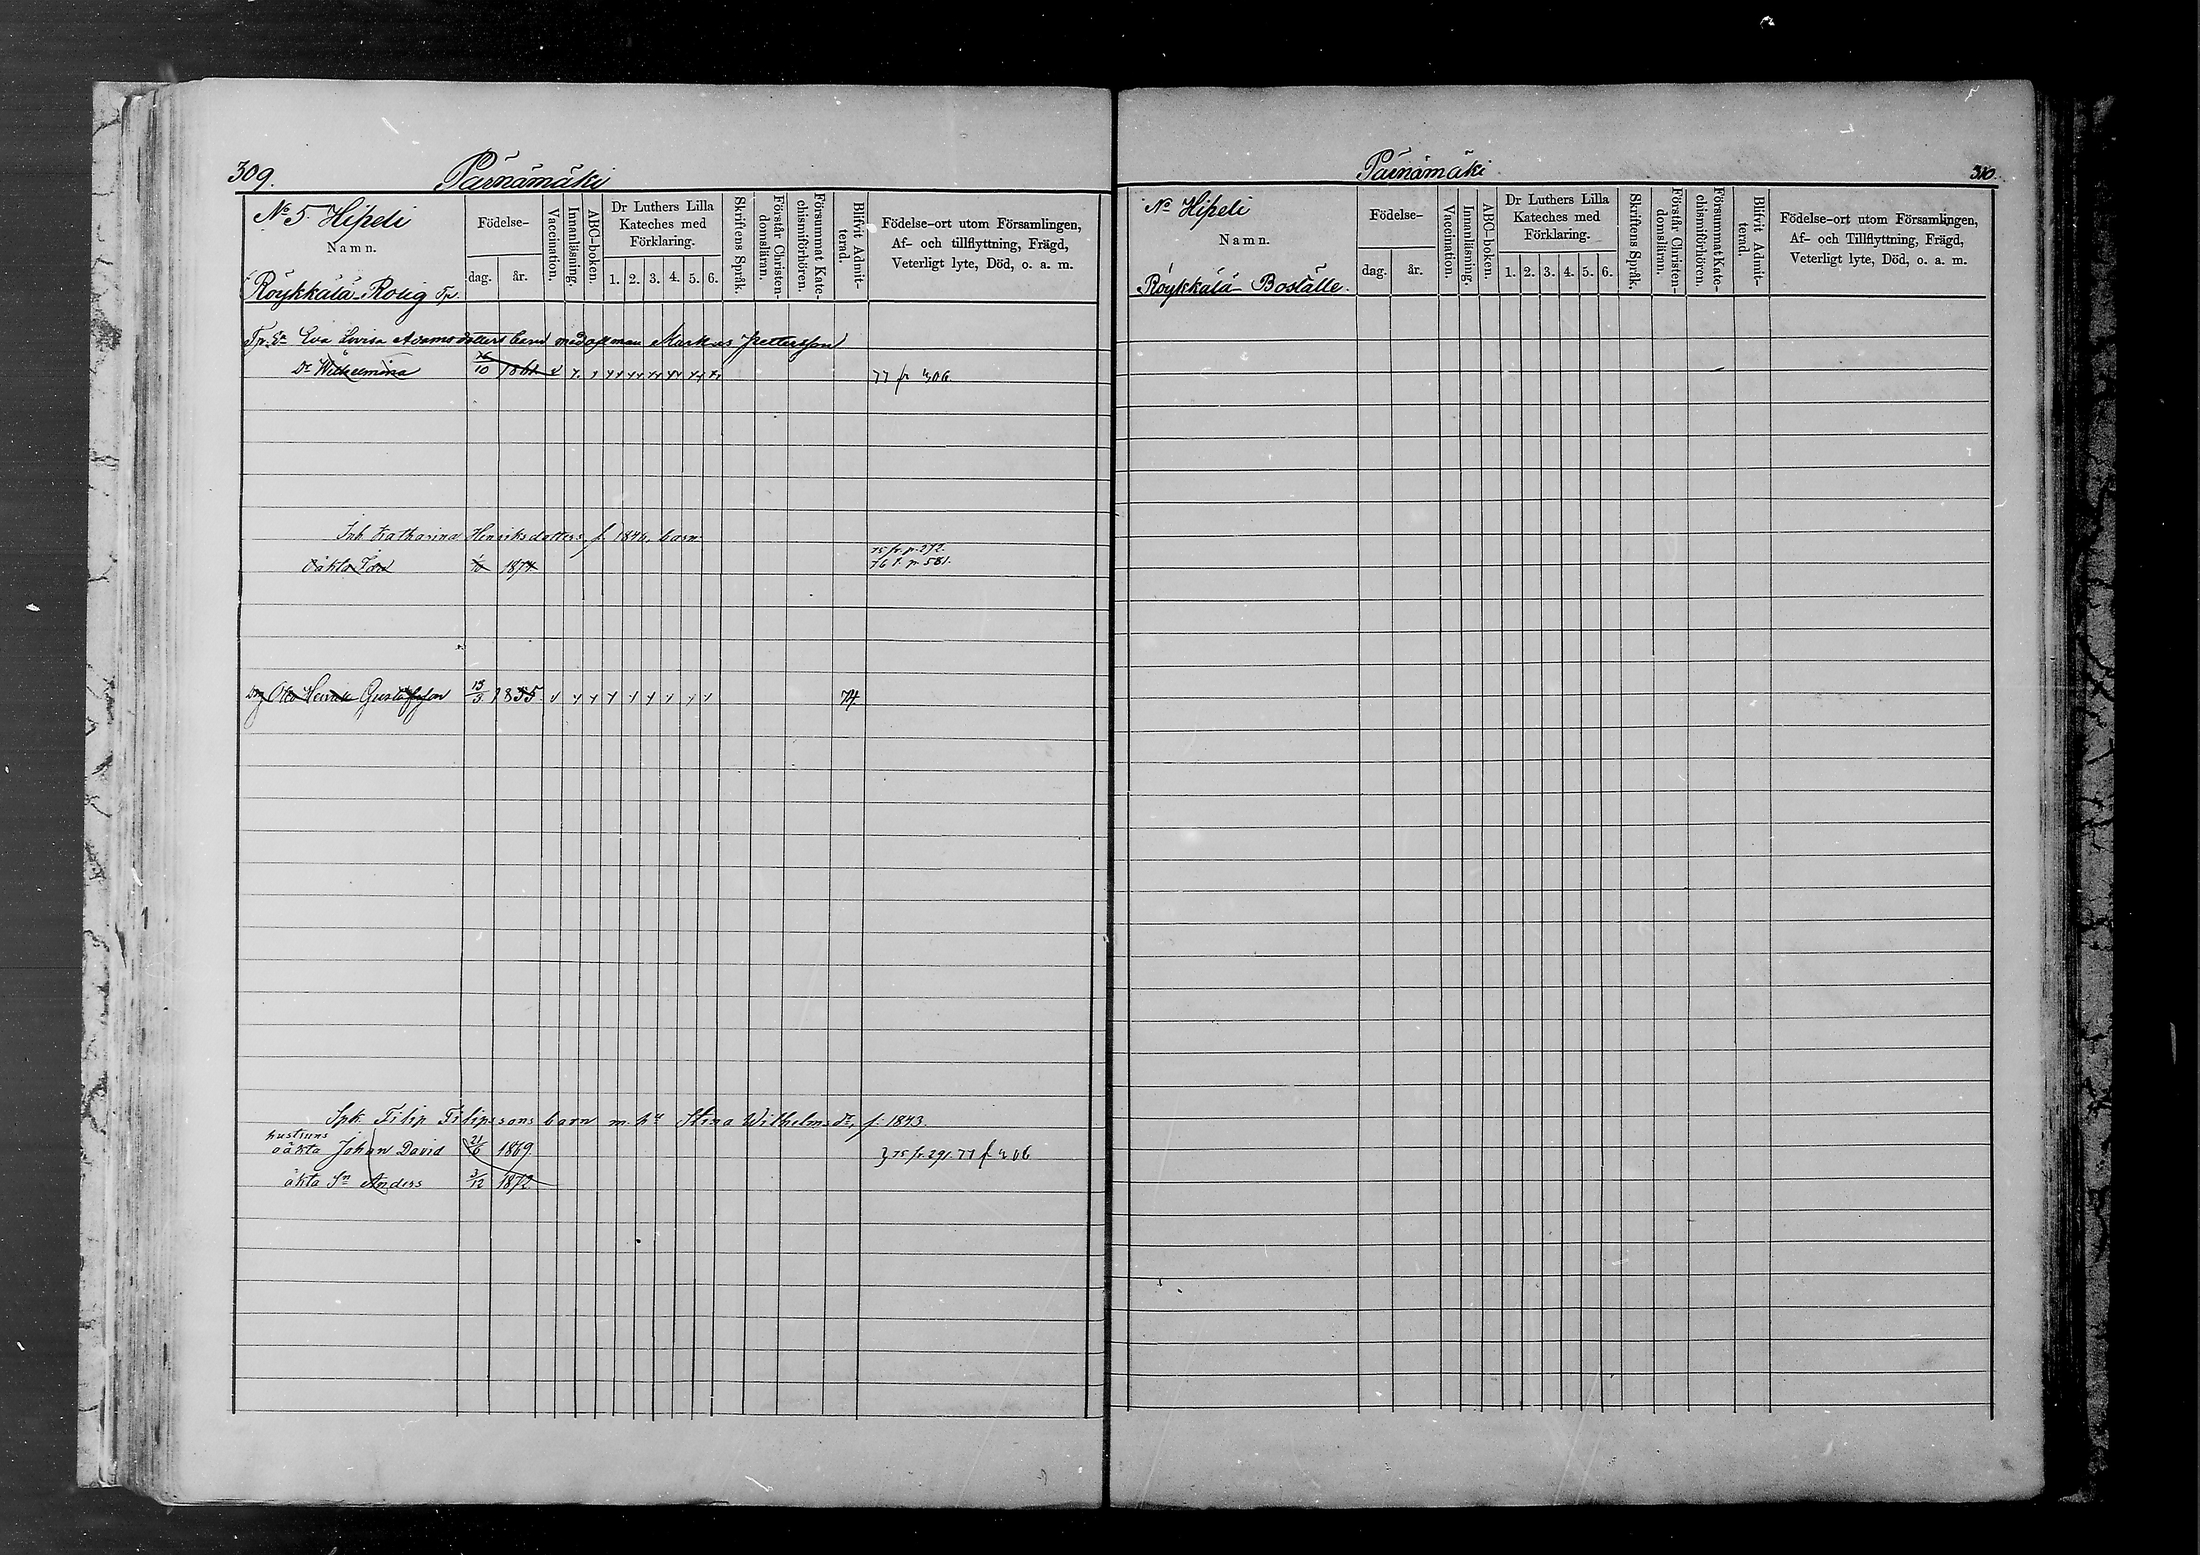 309.
Pärnämäki
No 5. Hipeli
Namn.
Röykkälä Rolig Tp.
Födelse-
dag. år.
Vaccination.
Innanläsning.
ABC-boken.
Dr Luthers Lilla
Kateches med
Förklaring.
1. 2. 3. 4. 5. 6.
Skriftens Språk.
Förstår Christen-
domsläran.
Försummat Kate-
chismiförhören.
Blifvit Admit-
terad.
Födelse-ort utom Församlingen,
Af- och tillflyttning, Frägd,
Veterligt lyte, Död, o. a. m.
Eva Lovisa Adamsdotters barn med afl man Markus Pettersson
Dr Wilhelmina 26/10 1861 77 fr 306.
Inh Katharina Henriksdotters f 1846, barn
75 fr. p. 272.
oäkta Son 1/10 1874 76 t. p 581.
Otto Henrik Gustafsson 13/3 1855 74.
Spk Filip Filipssons barn m. hu Stina Wilhelmsdr. f. 1843.
hustruns
oäkta Johan David 21/6 1869 75 fr 291. 77 f 306
äkta Sn Anders 3/12 1872
Pärnämäki
310.
No Hipeli
Namn.
Röykkälä Boställe.
Födelse-
dag. år.
Vaccination.
Innanläsning.
ABC-boken.
Dr Luthers Lilla
Kateches med
Förklaring.
1. 2. 3. 4. 5. 6.
Skriftens Språk.
Förstår Christen-
domsläran.
Försummat Kate-
chismiförhören.
Blifvit Admit-
terad.
Födelse-ort utom Församlingen,
Af- och Tillflyttning, Frägd,
Veterligt lyte, Död, o. a. m.